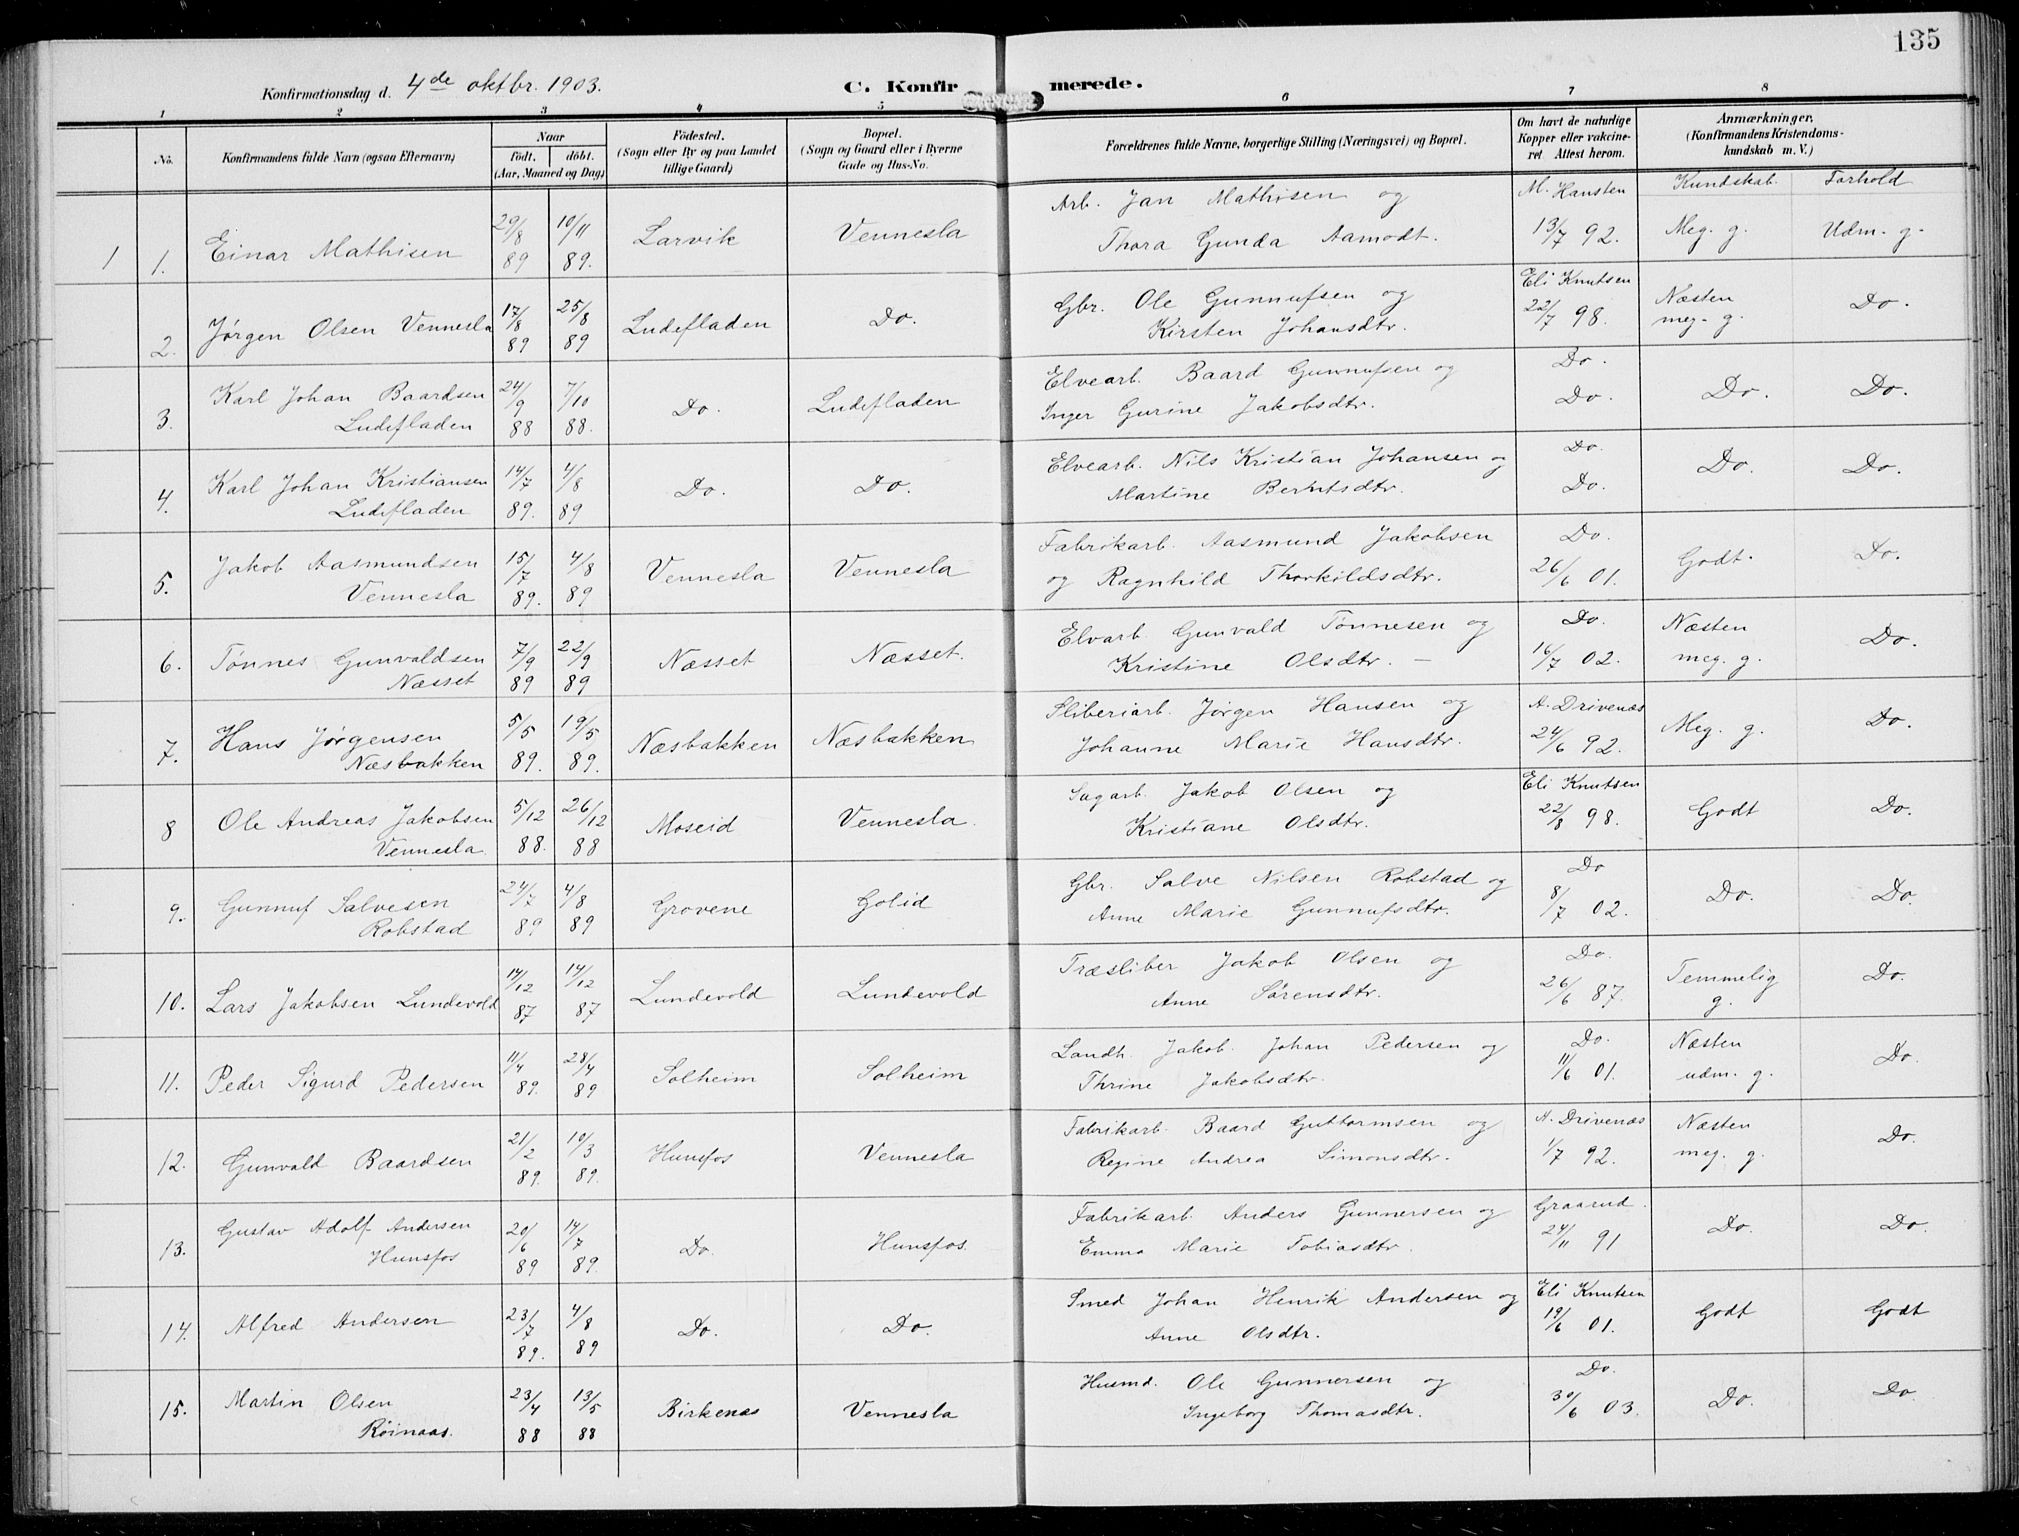 135
Konfirmationsdag d. 4de oktbr. 1903. C. Konfirmerede.
1 2 3 4 5 6 7 8
No. Konfirmandens fulde Navn (ogsaa Efternavn)
Naar
født. døbt.
(Aar, Maaned og Dag)
Fødested.
(Sogn eller By og paa Landet
tillige Gaard)
Bopæl.
(Sogn og Gaard eller i Byerne
Gade og Hus-No.
Forældrenes fulde Navne, borgerlige Stilling (Næringsvei) og Bopæl.
Om havt de naturlige
Kopper eller vakcine-
ret Attest herom.
Anmærkninger.
(Konfirmandens Kristendoms-
kundskab m. V.)
Kundskab. Forhold
1 1. Einar Mathisen 29/8 89 10/11 89. Larvik Vennesla Arb. Jan Mathisen og
Thora Gunda Aamodt. M. Hansten 13/7 92. Meg. g. Udm. g.
2. Jørgen Olsen Vennesla 17/8 89 25/8 89 Ludefladen Do. Gbr. Ole Gunnufsen og
Kirsten Johansdtr. Eli Knutsen 22/7 98. Næsten meg. g. Do.
3. Karl Johan Baardsen
Ludefladen 24/9 88 7/10 88. Do. Ludefladen Elvearb. Baard Gunnufsen og
Inger Gurine Jakobsdtr. Do. Do. Do. Do.
4. Karl Johan Kristiansen
Ludefladen 14/7 89. 4/8 89 Do. Do. Elvearb. Nils Kristian Johansen og
Martine Berntsdtr. Do. Do. Do. Do.
5. Jakob Aasmundsen
Vennesla 15/7 89. 4/8 89 Vennesla Vennesla Fabrikarb. Aasmund Jakobsen
og Ragnhild Thorkildsdtr. Do. 26/6 01. Godt. Do.
6. Tønnes Gunvaldsen
Næsset 7/9 89 22/9 89 Næsset Næsset. Elvarb. Gunvald Tønnesen og
Kristine Olsdtr. — Do. 16/7 02. Næsten meg. g. Do.
7. Hans Jørgensen
Næsbakken 5/5 89. 19/5 89. Næsbakken Næsbakken Sliberiarb. Jørgen Hansen og
Johanne Marie Hansdtr. A. Drivenæs 24/6 92. Meg. g. Do.
8 Ole Andreas Jakobsen
Vennesla 5/12 88. 26/12 88 Moseid Vennesla. Sagarb. Jakob Olsen og
Kristiane Olsdtr. Eli Knutsen 22/8 98. Godt Do.
9. Gunnuf Salvesen
Robstad 24/7 89 4/8 89 Grovene Golid Gbr. Salve Nilsen Robstad og
Anne Marie Gunnufsdtr. Do 8/7 02. Do. Do.
10. Lars Jakobsen Lundevold 14/12 87 14/12 87 Lundevold Lundevold Træsliber Jakob Olsen og
Anne Sørensdtr. Do. 26/6 87. Temmelig g. Do.
11. Peder Sigurd Pedersen 11/4 89. 28/4 89 Solheim Solheim Landh. Jakob Johan Pedersen og
Thrine Jakobsdtr. Do. 11/6 01. Næsten udm. g. Do
12. Gunvald Baardsen 21/2 89. 10/3 89. Hunsfos Vennesla Fabrikarb. Baard Guttormsen og
Regine Andrea Simonsdtr. A. Drivenæs 1/7 92. Næsten meg. g. Do.
13. Gustav Adolf Andersen
Hunsfos 20/6 89 14/7 89. Do. Hunsfos. Fabrikarb. Anders Gunnersen og
Emma Marie Tobiasdtr. Graarud. 24/11 91 Do. Do.
14. Alfred Andersen 23/7 89. 4/8 89 Do. Do. Smed Johan Henrik Andersen og
Anne Olsdtr. Eli Knutsen 19/6 01. Godt Godt
15. Martin Olsen
Røinaas. 23/4 88 13/5 88 Birkenæs Vennesla Husmd. Ole Gunnersen og
Ingeborg Thomasdtr. Do. 30/6 03. Do. Do